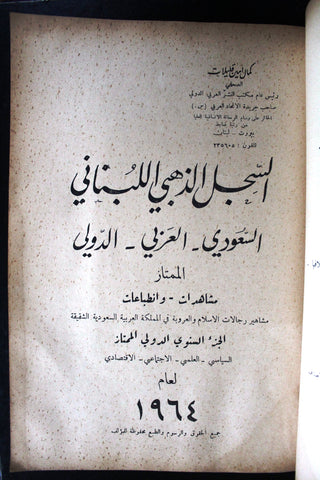 كمال أمين قليلات
الصحفي
رئيس عام مكتب النشر العربي الدولي
صاحب جريدة الاتحاد العربي (س.)
الحائز على وسام الرسالة الانسانية العليا
من رتبة ضابط
بيروت - لبنان
تلفون : ٢٣٥٦٠٥
السجل الذهبي اللبناني
السعودي - العربي - الدولي
الممتاز
مشاهدات - وانطباعات
مشاهير رجالات الاسلام والعروبة في المملكة العربية السعودية الشقيقة
الجزء السنوي الدولي الممتاز
السياسي - العلمي - الاجتماعي - الاقتصادي
لعام
١٩٦٤
جميع الحقوق والرسوم والطبع محفوظة للمؤلف